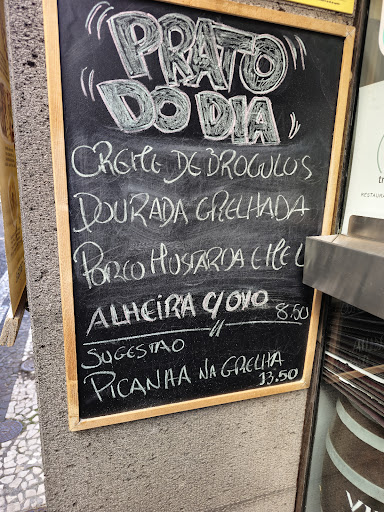 PRATO
DO DIA
CREME DE BROCULOS
DOURADA GRELHADA
PORCO MOSTARDA E MEL
ALHEIRA C/OVO 8.50
SUGESTAO
PICANHA NA GRELHA
13.50